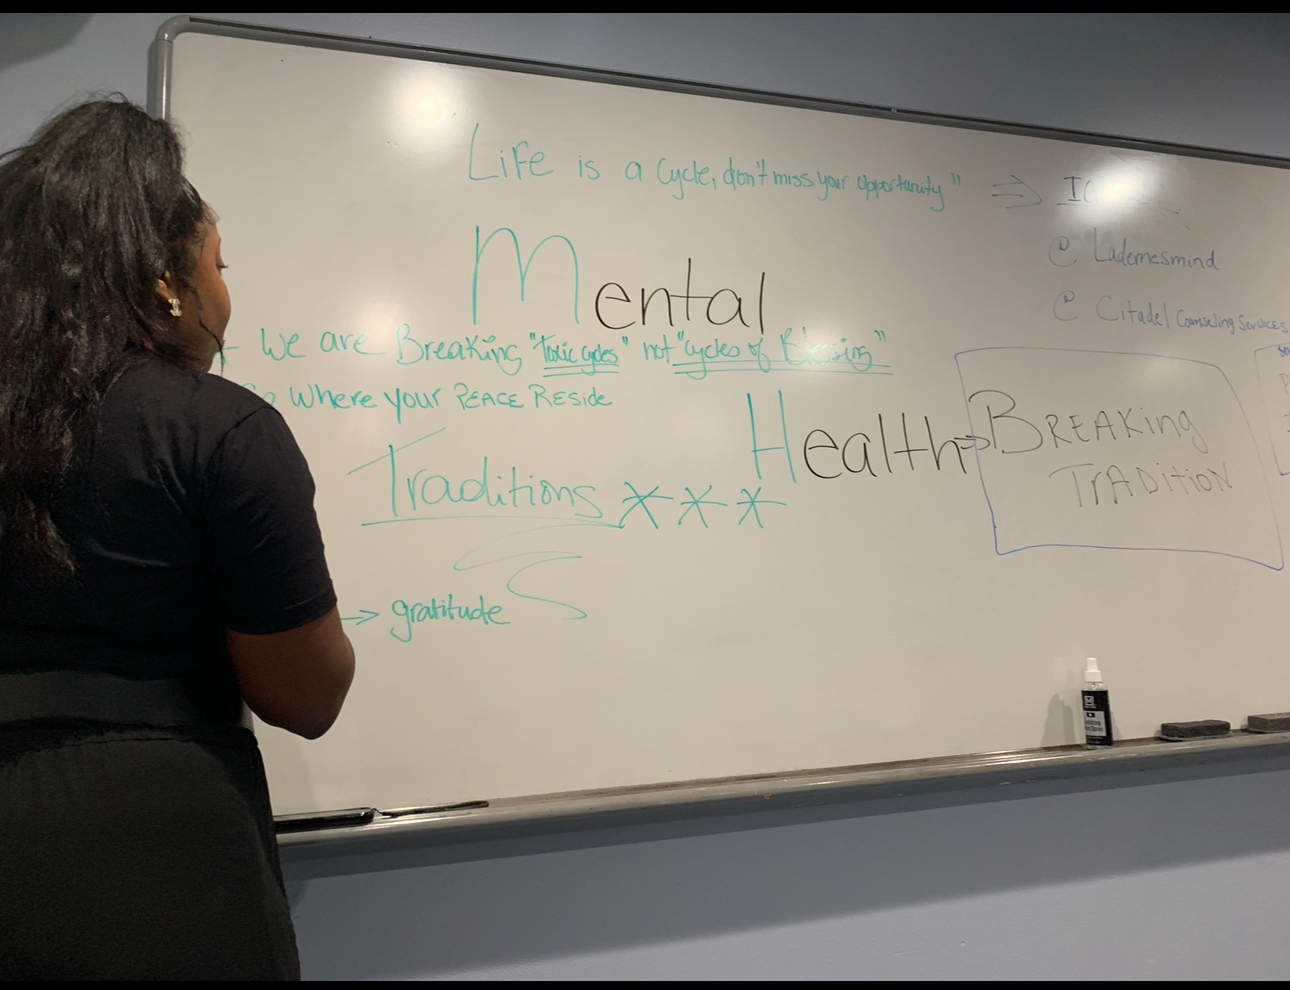 Life is a Cycle, don't miss your opportunity" ⇒
@ Ladernesmind
@ Citadel Counseling Services
Mental
We are Breaking "Toxic cycles" not "cycles of Blessing"
Where your PEACE RESIDE
Health ⇒ BREAKing
TrADitioN
Traditions ***
→ gratitude